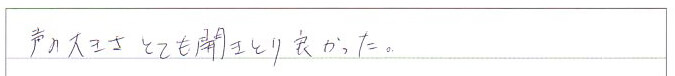 声の大きさとても聞きとり良かった。